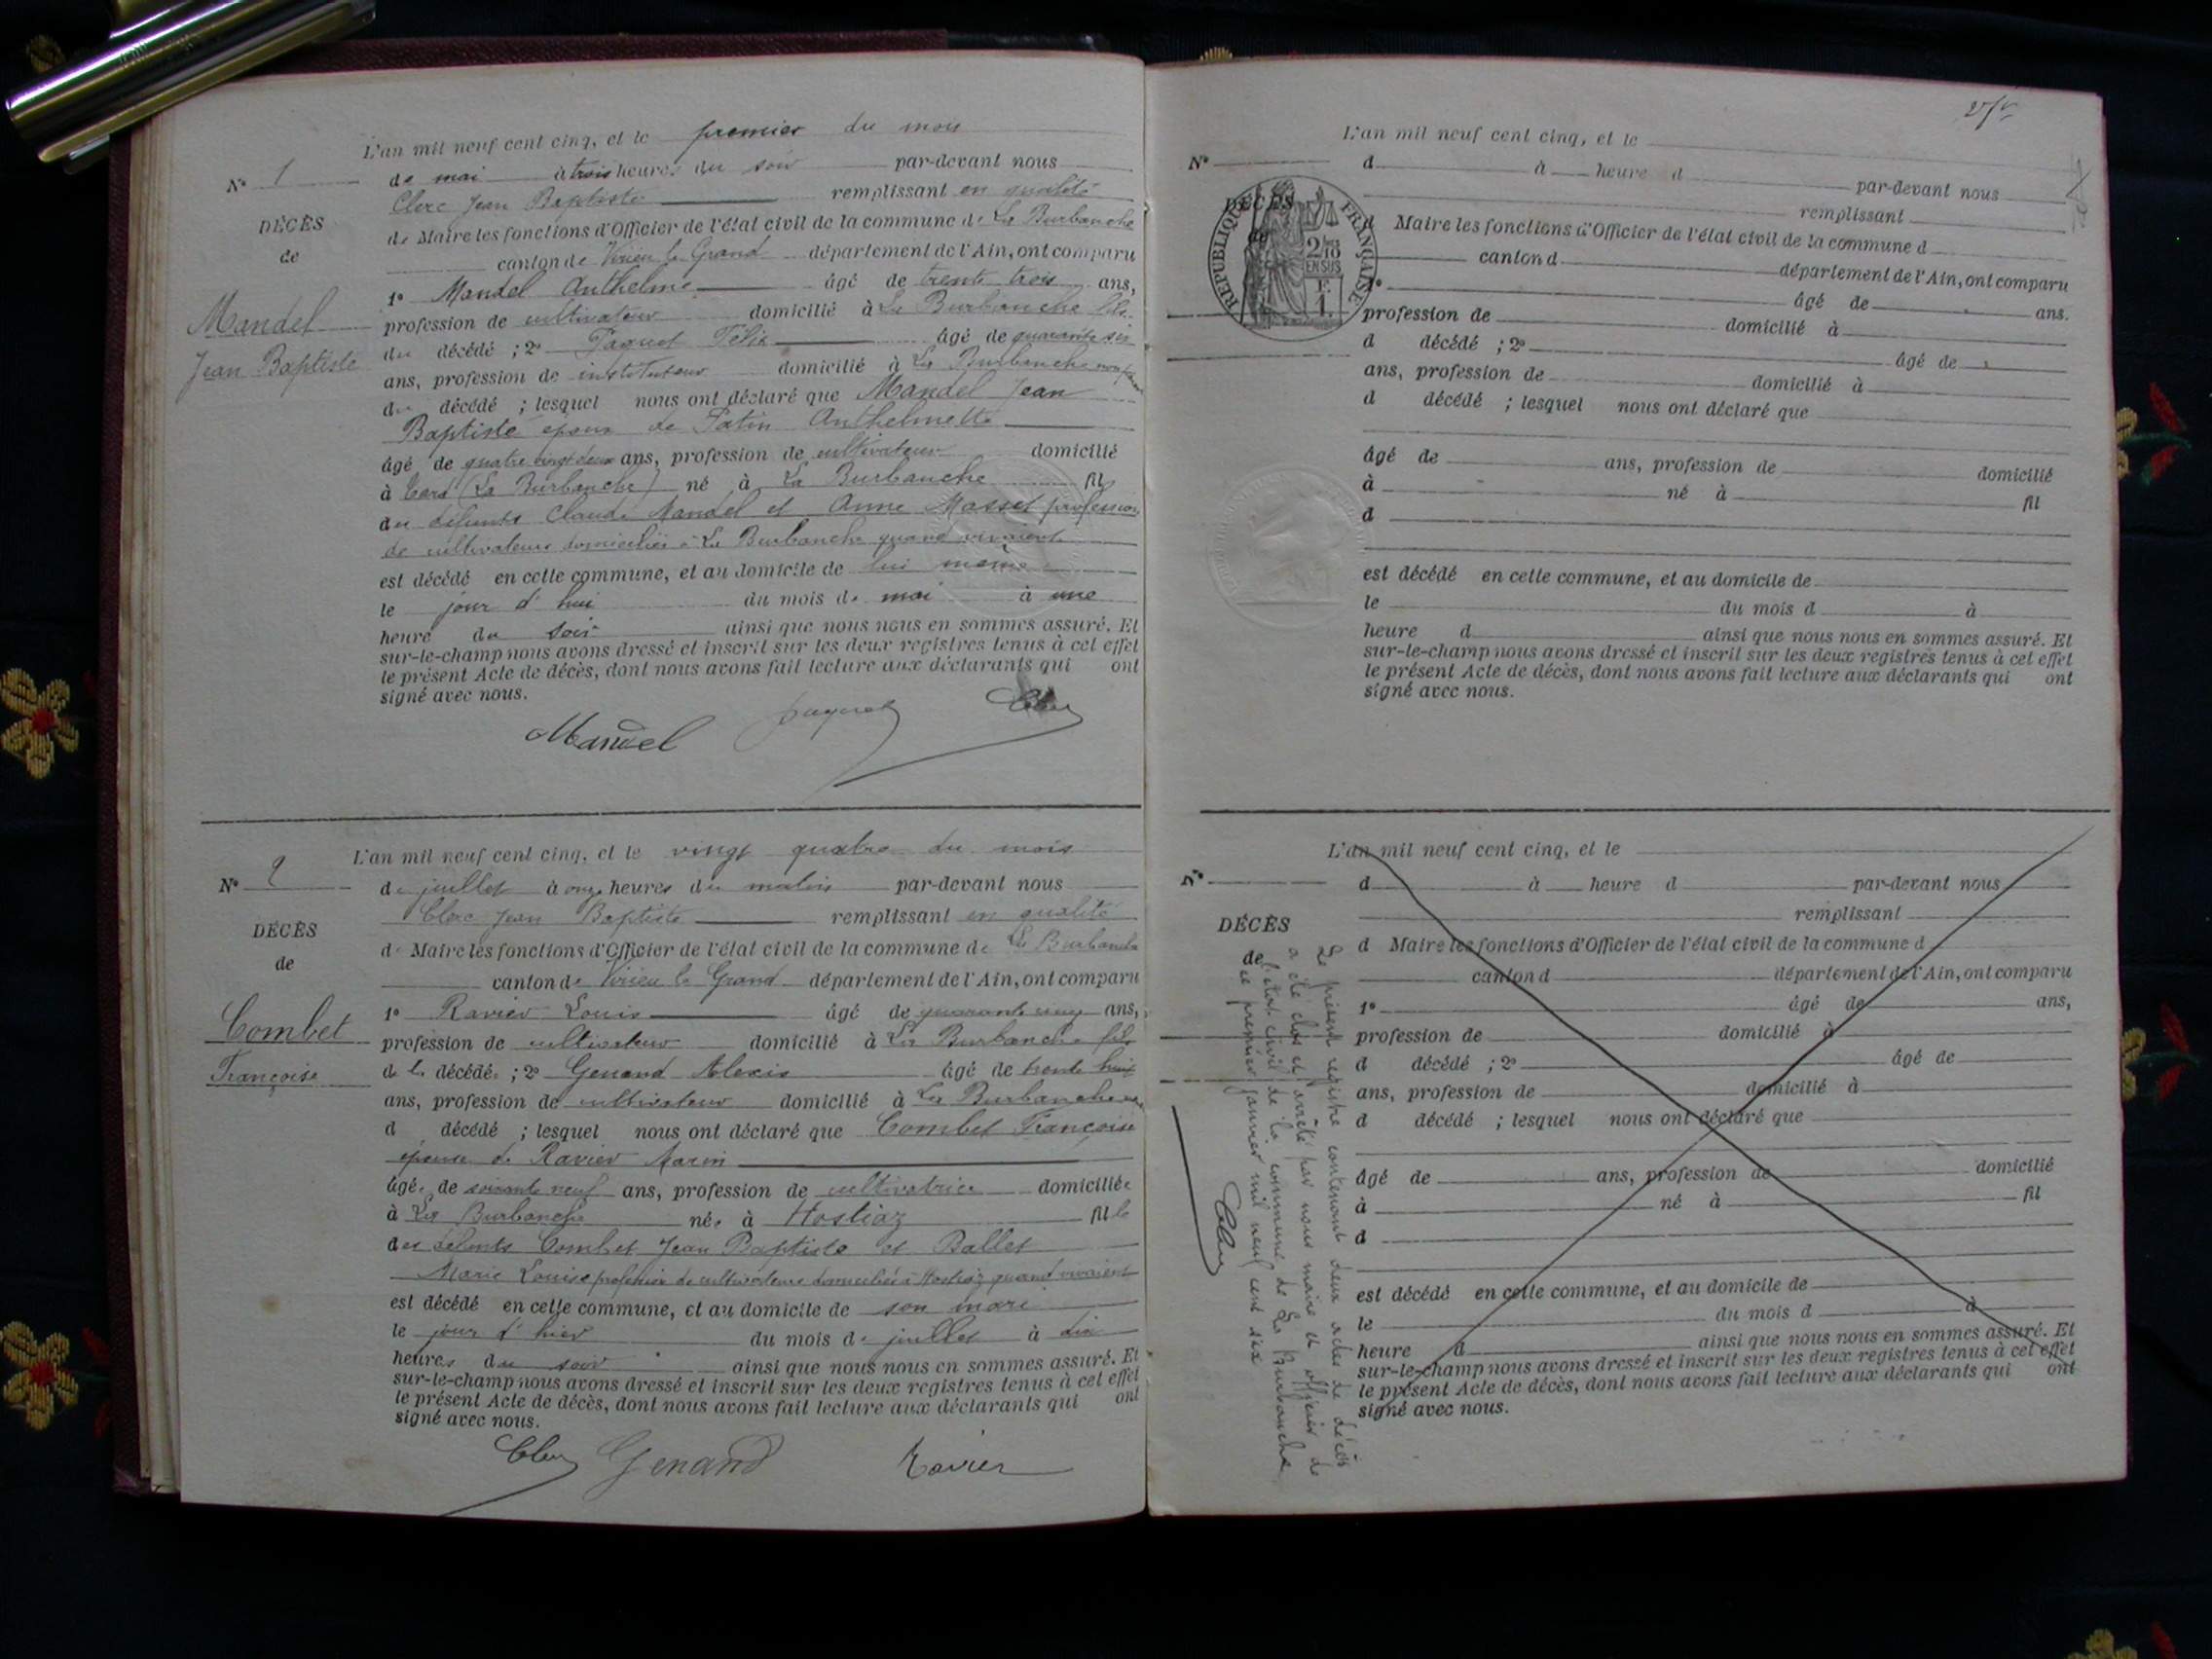 L'an mil neuf cent cinq, et le premier du mois
N° 1
de mai à trois heures du soir par-devant nous
Clerc Jean Baptiste remplissant en qualité
de Maire les fonctions d'Officier de l'état civil de la commune de La Burbanche
DÉCÈS
de
canton de Virieu le Grand département de l'Ain, ont comparu
1° Mandel Anthelme âgé de trente trois ans,
Mandel
Jean Baptiste
profession de cultivateur domicilié à La Burbanche fils
du décédé ; 2° Paquet Félix âgé de quarante six
ans, profession de instituteur domicilié à La Burbanche
du décédé ; lesquel nous ont déclaré que Mandel Jean
Baptiste époux de Patin Anthelmette
âgé de quatre vingt deux ans, profession de cultivateur domicilié
à (La Burbanche) né à La Burbanche fil
des défunts Claude Mandel et Anne Masset profession
de cultivateurs domiciliés à La Burbanche quand vivaient
est décédé en cette commune, et au domicile de lui même
le jour d'hui du mois de mai à une
heure du soir ainsi que nous nous en sommes assuré. Et
sur-le-champ nous avons dressé et inscrit sur les deux registres tenus à cet effet
le présent Acte de décès, dont nous avons fait lecture aux déclarants qui ont
signé avec nous.
Mandel Paquet Clerc
L'an mil neuf cent cinq, et le vingt quatre du mois
N° 2
de juillet à onze heures du matin par-devant nous
Clerc Jean Baptiste remplissant en qualité
de Maire les fonctions d'Officier de l'état civil de la commune de La Burbanche
DÉCÈS
de
canton de Virieu le Grand département de l'Ain, ont comparu
1° Ravier Louis âgé de quarante cinq ans,
Combet
Françoise
profession de cultivateur domicilié à La Burbanche fils
de la décédée ; 2° Genand Alexis âgé de trente huit
ans, profession de cultivateur domicilié à La Burbanche
d décédé ; lesquel nous ont déclaré que Combet Françoise
épouse de Ravier Marin
âgée de soixante neuf ans, profession de cultivatrice domiciliée
à La Burbanche née à Hostiaz fille
des défunts Combet Jean Baptiste et Ballet
Marie Louise profession de cultivateurs domiciliés à Hostiaz quand vivaient
est décédé en cette commune, et au domicile de son mari
le jour d'hier du mois de juillet à dix
heures du soir ainsi que nous nous en sommes assuré. Et
sur-le-champ nous avons dressé et inscrit sur les deux registres tenus à cet effet
le présent Acte de décès, dont nous avons fait lecture aux déclarants qui ont
signé avec nous.
Clerc Genand Ravier
L'an mil neuf cent cinq, et le
N°
d à heure d par-devant nous
remplissant
DÉCÈS
de
RÉPUBLIQUE FRANÇAISE
2/10 EN SUS
F. 1.
d Maire les fonctions d'Officier de l'état civil de la commune d
canton d département de l'Ain, ont comparu
1° âgé de ans.
profession de domicilié à
d décédé ; 2° âgé de
ans, profession de domicilié à
d décédé ; lesquel nous ont déclaré que
âgé de ans, profession de domicilié
à né à fil
d
est décédé en cette commune, et au domicile de
le du mois d à
heure d ainsi que nous nous en sommes assuré. Et
sur-le-champ nous avons dressé et inscrit sur les deux registres tenus à cet effet
le présent Acte de décès, dont nous avons fait lecture aux déclarants qui ont
signé avec nous.
L'an mil neuf cent cinq, et le
N°
d à heure d par-devant nous
remplissant
DÉCÈS
de
d Maire les fonctions d'Officier de l'état civil de la commune d
canton d département de l'Ain, ont comparu
1° âgé de ans,
profession de domicilié à
d décédé ; 2° âgé de
ans, profession de domicilié à
d décédé ; lesquel nous ont déclaré que
âgé de ans, profession de domicilié
à né à fil
d
est décédé en cette commune, et au domicile de
le du mois d à
heure d ainsi que nous nous en sommes assuré. Et
sur-le-champ nous avons dressé et inscrit sur les deux registres tenus à cet effet
le présent Acte de décès, dont nous avons fait lecture aux déclarants qui ont
signé avec nous.
Le présent registre contenant deux actes de décès
a été clos et arrêté par nous maire et officier de
l'état civil de la commune de La Burbanche,
ce premier janvier mil neuf cent six
Clerc